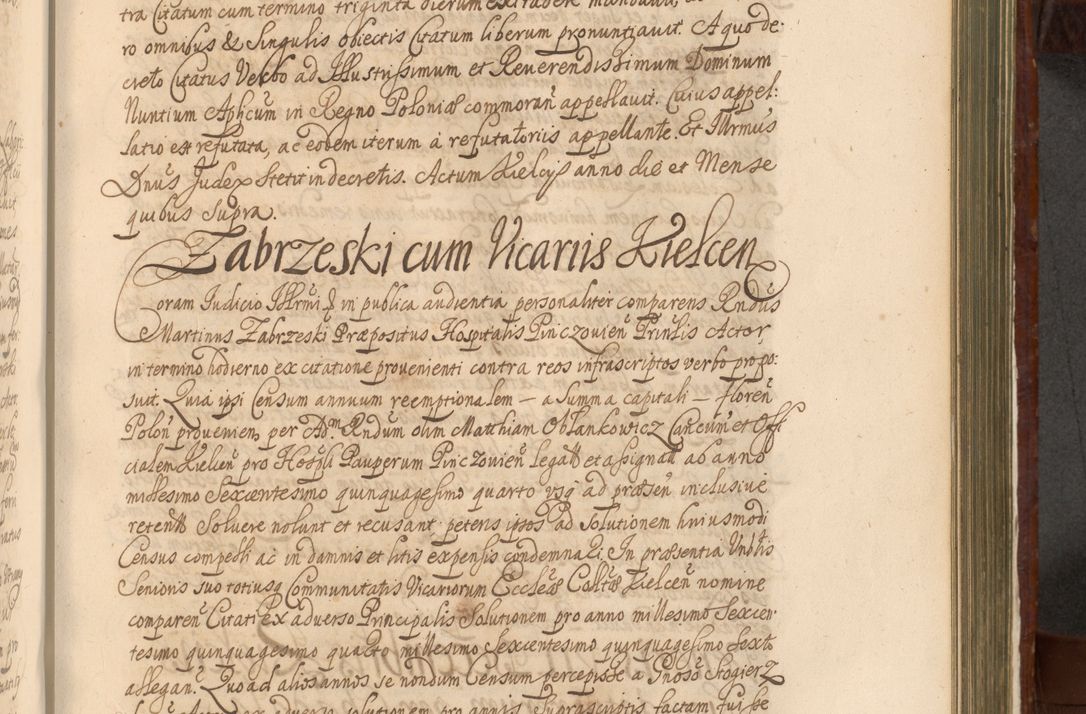 tra Citatum cum termino triginta dierum extradere mandavit, ac
ro omnibus & Singulis obiectis Citatum liberum pronuntiavit. A quo de
creto Citatus Verbo ad Jllustrissimum et Reverendissimum Dominum
Nuntium Aplicum in Regno Poloniæ commoran̄ appellavit. Cuius appel:
latio est refutata, ac eodem iterum à refutatoriis appellante. Et Jllrmus
Dnūs Judex stetit in decretis. Actum Kielcijs anno die et Mense
quibus supra.
Zabrzeski cum Vicariis Kielcen
Coram Judicio Jllrmi D in publica audientia personaliter comparens Rndūs
Martinus Zabrzeski Præpositus Hospitalis Pinczovien̄ Prinlis Actor,
in termino hodierno ex citatione provenienti contra reos infrascriptos verbo propo:
suit. Quia ipsi Censum annuum reemptionalem — a summa capitali — floren̄
Polon̄ provenien̄, per Adm Rndum olim Matthiam Oblankowicz Can Cun̄ et Offi
cialem Kielien̄ pro Hospli Pauperum Pinczovien̄ legatt et assignatt ab anno
millesimo Sexcentesimo quinquagesimo quarto usq ad præsen̄ inclusive
retentt Solvere nolunt et recusant petens ipsos ad Solutionem huiusmodi
Census compelli ac in damnis et litis expensis condemnari. In præsentia Vnblis
Senioris suo totiusq Communitatis Vicariorum Eccleæ Collæ Kielcen̄ nomine
comparen̄ Citati ex adverso Principalis Solutionem pro anno millesimo Sexcen
tesimo quinquagesimo quarto millesimo Sexcentesimo quinquagesimo Sexto
allegan̄. Quo ad alios annos se nondum Censum percepisse a Gnoso Sogierz
solutionem pro annis suprascriptis factam fuisse